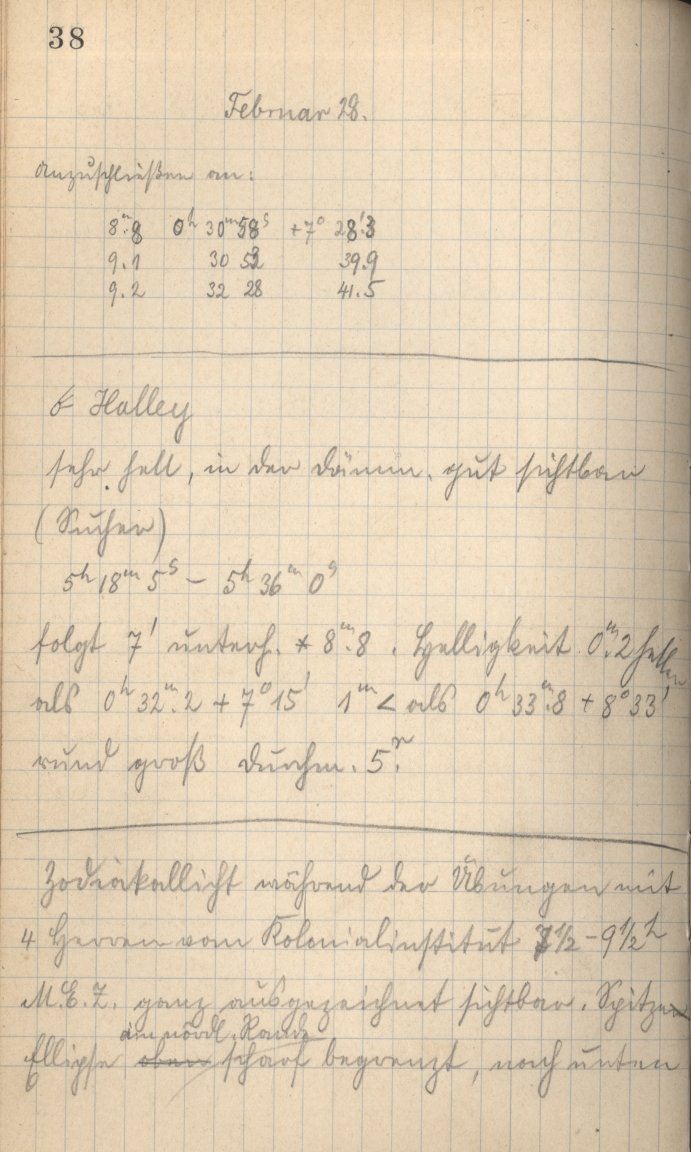 38
Februar 28.
Anzuschließen an:
8ᵐ.8 0ʰ 30ᵐ58ˢ +7° 28'.3
9.1 30 52 39.9
9.2 32 28 41.5
☄ Halley
sehr hell, in der Dämm. gut sichtbar
(Sucher)
5ʰ 18ᵐ 5ˢ – 5ʰ 36ᵐ 0ˢ
folgt 7' unterh. * 8ᵐ.8. Helligkeit 0ᵐ.2 heller
als 0ʰ 32ᵐ.2 + 7° 15' 1ᵐ < als 0ʰ 33ᵐ.8 + 8° 33'
rund groß Durchm. 5'.
Zodiakallicht während der Übungen mit
4 Herren vom Kolonialinstitut 7½–9½ʰ
M.E.Z. ganz ausgezeichnet sichtbar. Spitze
am nördl. Rande
Ellipse oben scharf begrenzt, nach unten